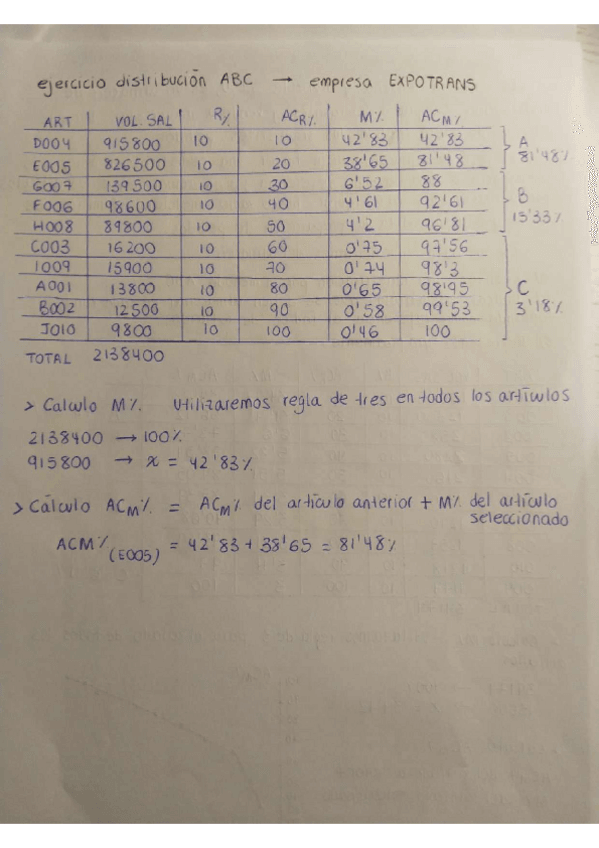 ejercicio distribución ABC → empresa EXPOTRANS
ART VOL. SAL R% ACR% M% ACM%
D004 915800 10 10 42'83 42'83
E005 826500 10 20 38'65 81'48
G007 139500 10 30 6'52 88
F006 98600 10 40 4'61 92'61
H008 89800 10 50 4'2 96'81
C003 16200 10 60 0'75 97'56
I009 15900 10 70 0'74 98'3
A001 13800 10 80 0'65 98'95
B002 12500 10 90 0'58 99'53
J010 9800 10 100 0'46 100
A
81'48%
B
15'33%
C
3'18%
TOTAL 2138400
> Calculo M%. Utilizaremos regla de tres en todos los artículos
2138400 → 100%
915800 → x = 42'83%
> Cálculo ACM% = ACM% del artículo anterior + M% del artículo
seleccionado
ACM%(E005) = 42'83 + 38'65 = 81'48%